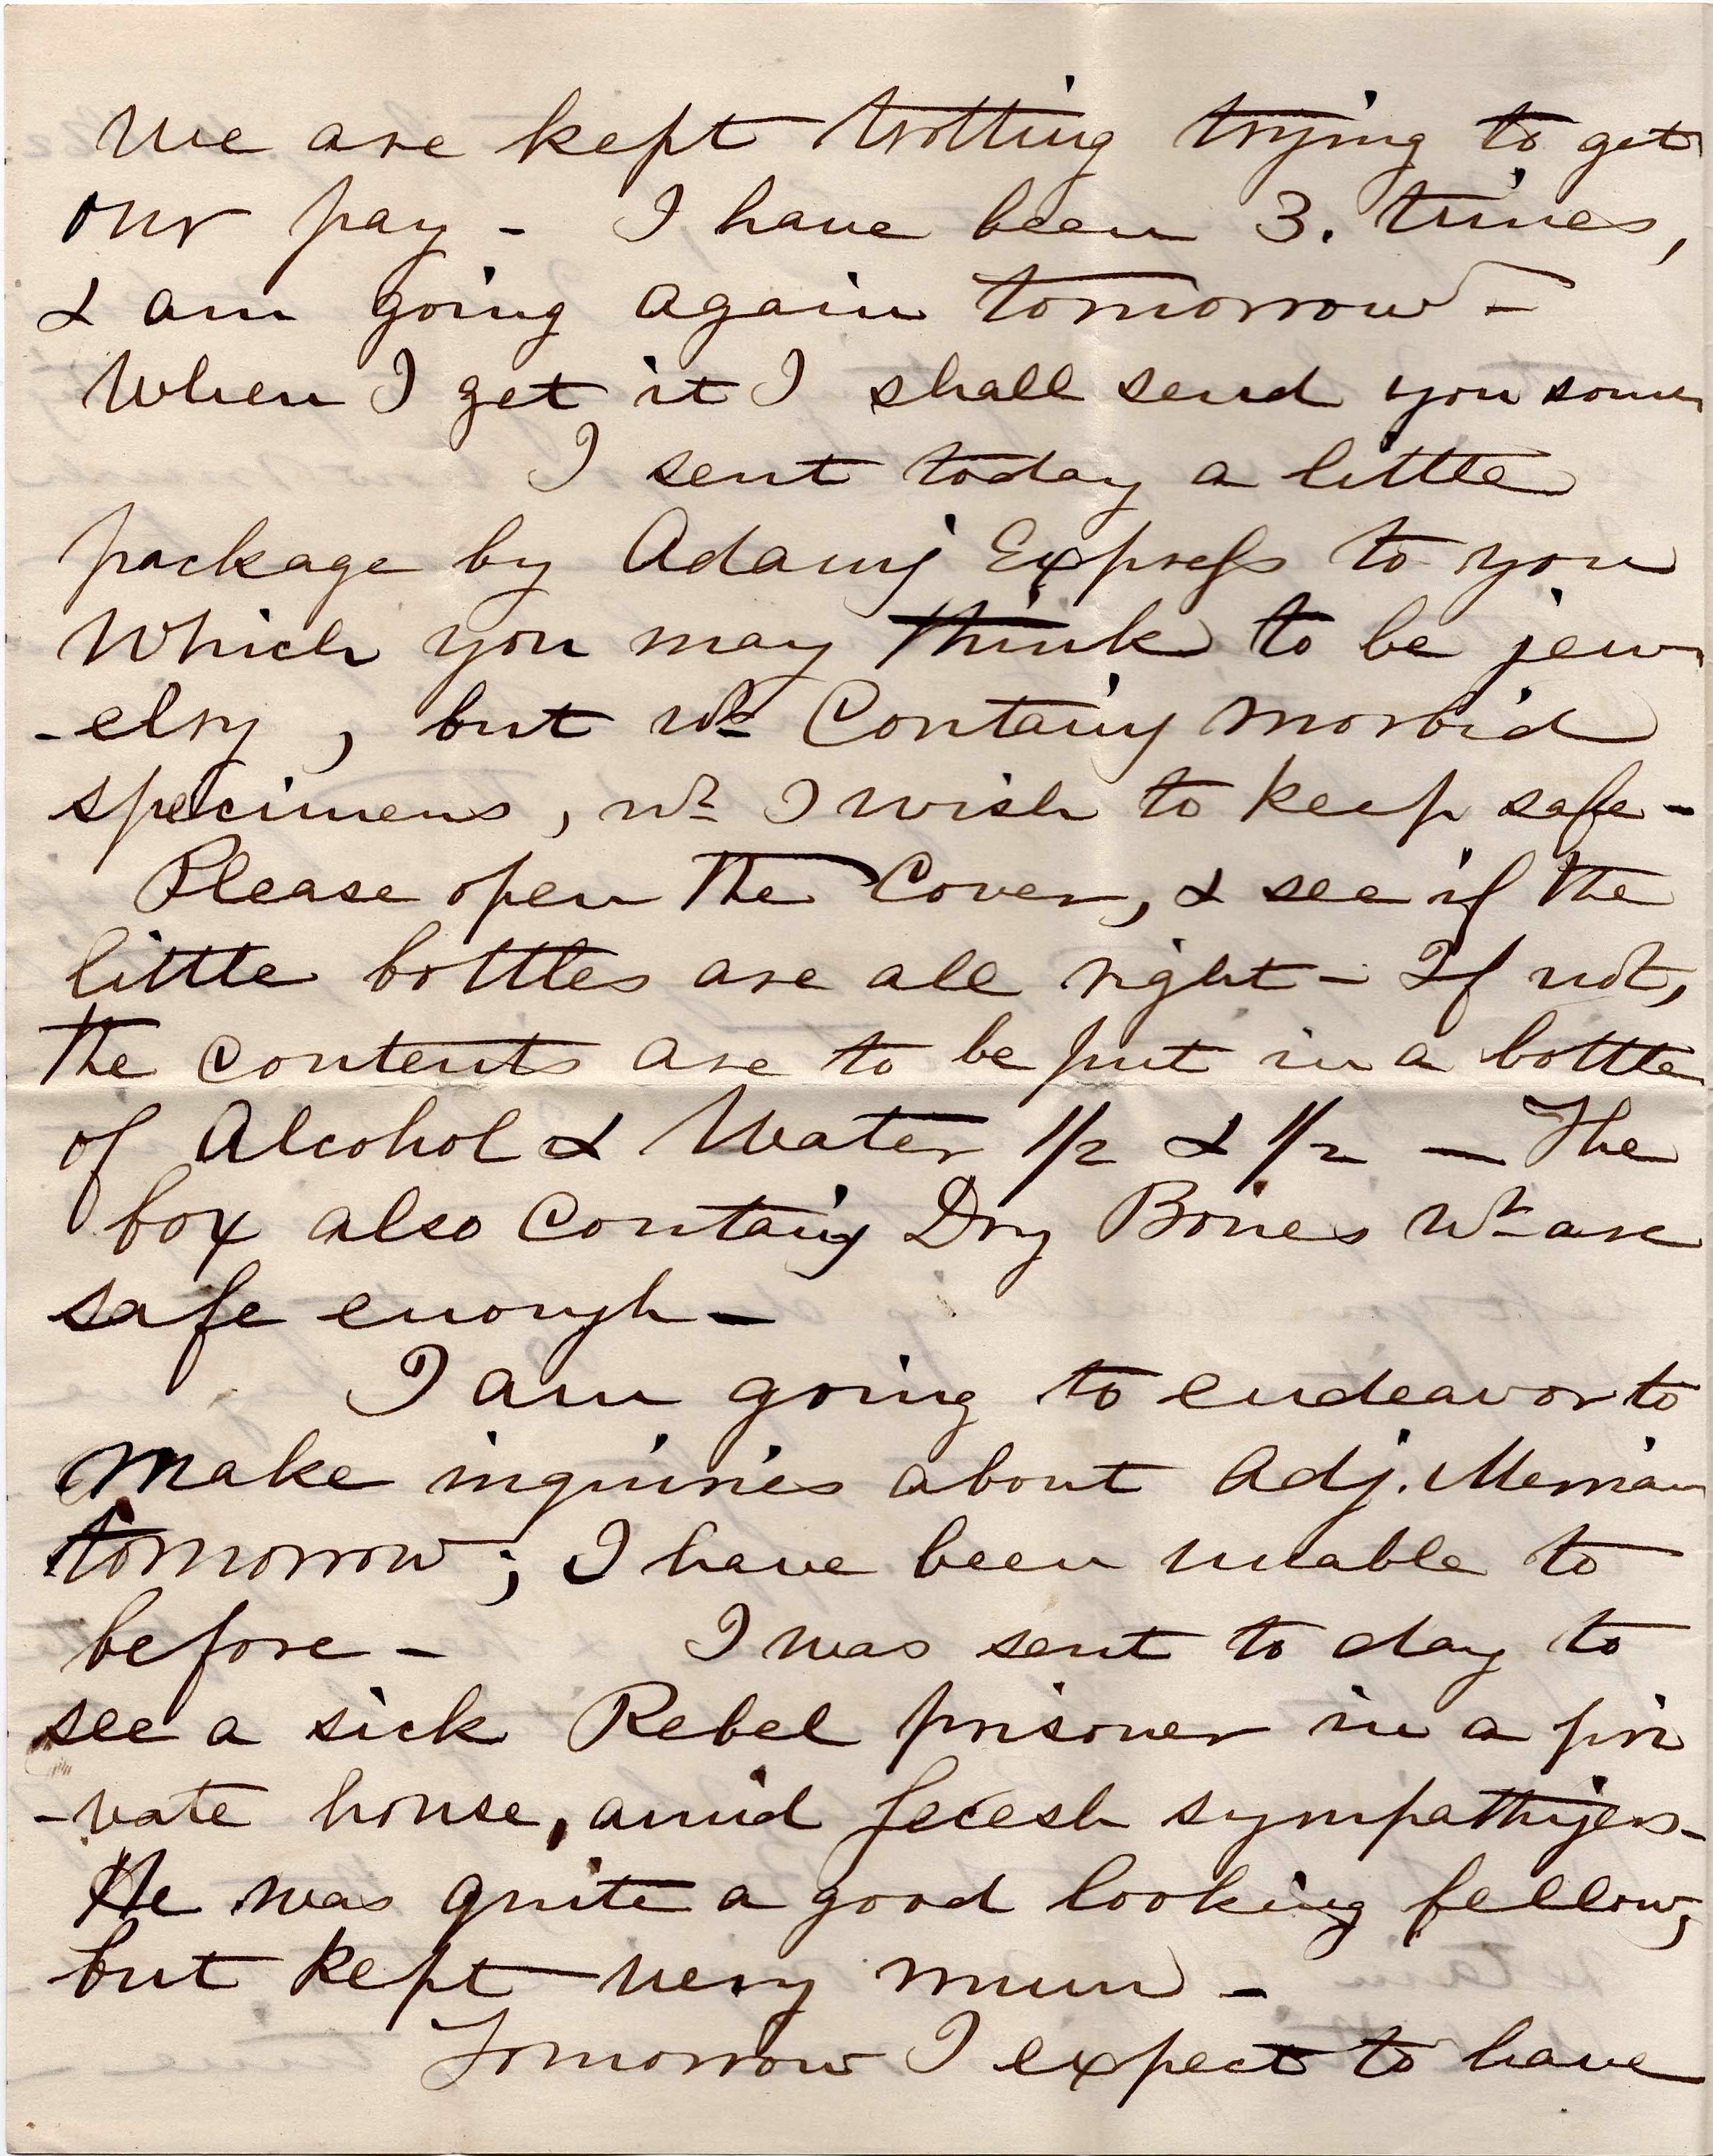 We are kept trotting trying to get
our pay - I have been 3. times,
& am going again tomorrow -
When I get it I shall send you some
I sent today a little
package by Adams Express to you
Which you may think to be jew
-elry, but wh Contains morbid
specimens, wh I wish to keep safe -
Please open the Cover, & see if the
little bottles are all right - If not,
the contents are to be put in a bottle
of Alcohol & Water 1/2 & 1/2 — The
box also Contains Dry Bones wh are
safe enough -
I am going to endeavor to
make inquiries about Adj. Merriam
tomorrow; I have been unable to
before - I was sent to day to
see a sick Rebel prisoner in a pri
-vate house, amid secesh sympathizers -
He was quite a good looking fellow,
but kept very mum -
Tomorrow I expect to have